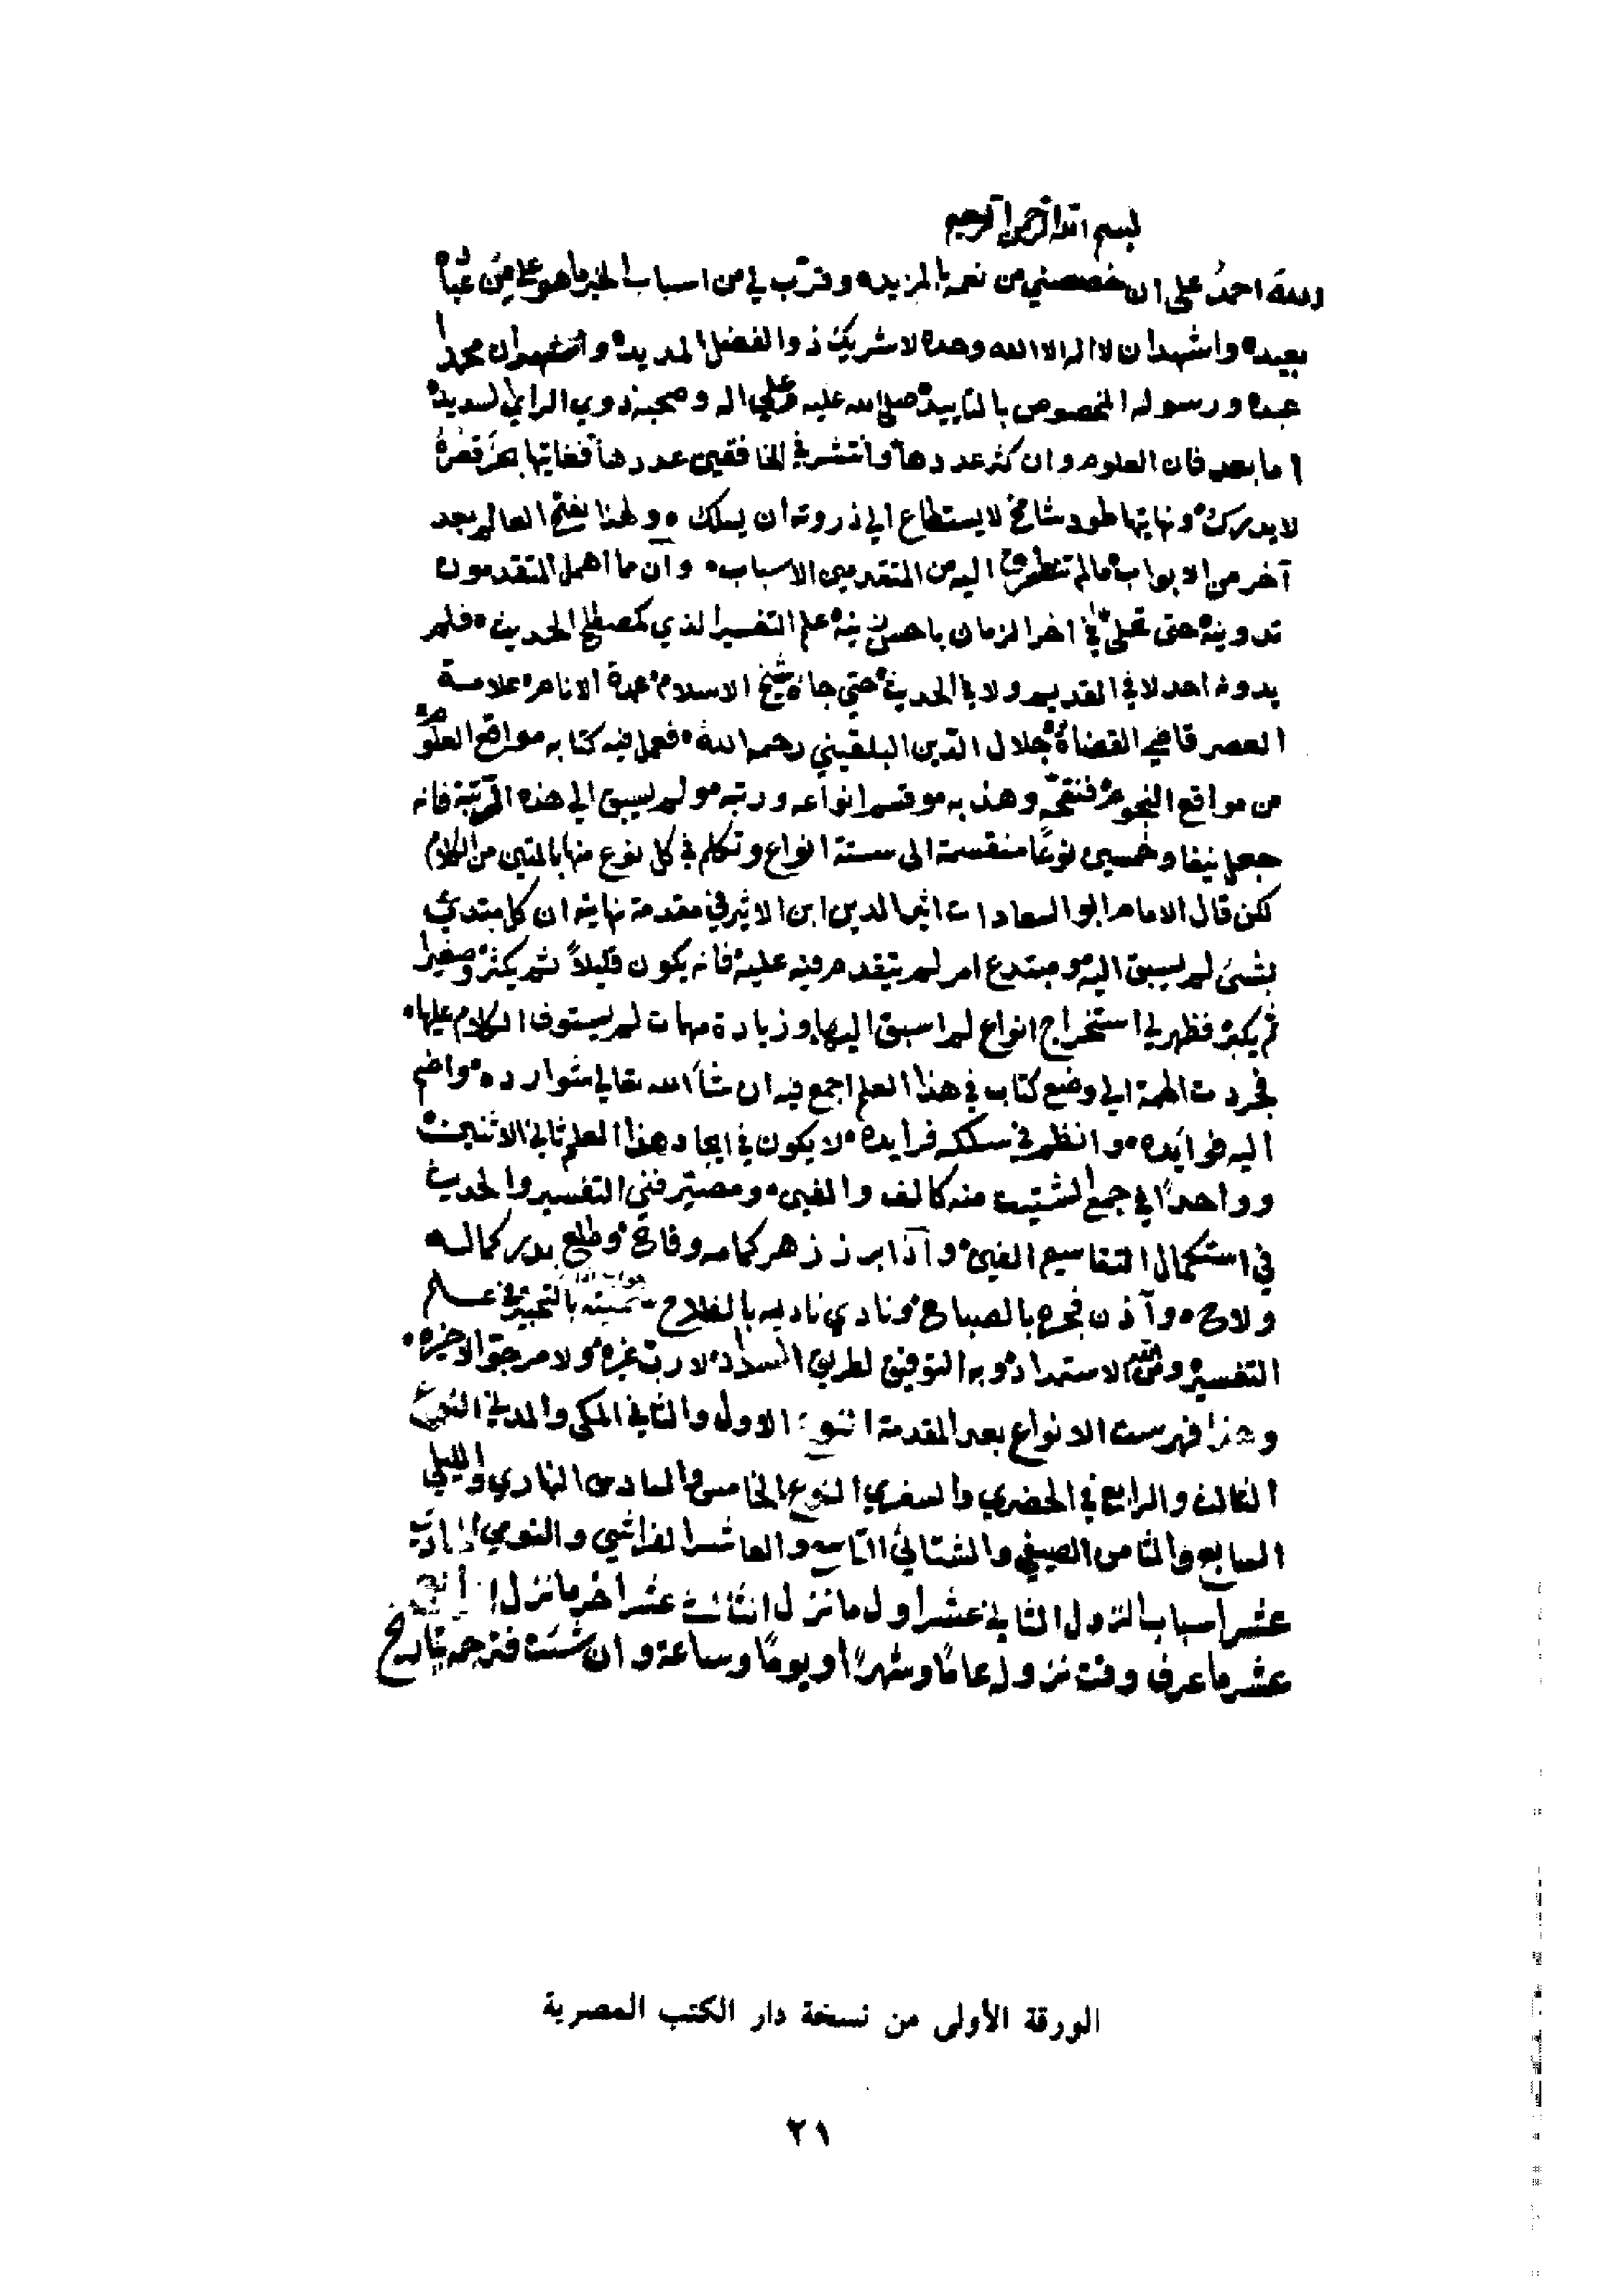 بسم الله الرحمن الرحيم
والله احمد على ان خصصني من نعمه بالمزيد وقرب لي من اسباب الخير ما هو على من عباده
بعيد واشهد ان لا اله الا الله وحده لا شريك له ذو الفضل المديد واشهد ان محمدا
عبده ورسوله المخصوص بالتاييد صلى الله عليه وعلى اله وصحبه ذوي الراي السديد
اما بعد فان العلوم وان كثر عددها وانتشر في الخافقين مددها فغايتها بحر قعره
لا يدرك ونهايتها طود شامخ لا يستطاع الي ذروته ان يسلك ولهذا يفتح لعالم بعد
آخر من الابواب مالم تتطرق اليه من المتقدمين الاسباب وان مما اهمل المتقدمون
تدوينه حتى تحلى في اخر الزمان باحسن زينة علم التفسير الذي كمصطلح الحديث فلم
يدونه احد لا في القديم ولا في الحديث حتي جا شيخ الاسلام عمدة الانام علامة
العصر قاضي القضاة جلال الدين البلقيني رحمه الله فعمل فيه كتابه مواقع العلوم
من مواقع النجوم فنقحه وهذبه وقسم انواعه ورتبه ولم يسبق الي هذه المرتبة فانه
جعله نيفا وخمسين نوعًا منقسمة الى ستة انواع وتكلم في كل نوع منها بالمتين من الكلام
لكن قال الامام ابو السعادات اثير الدين ابن الاثير في مقدمة نهايته ان كل مبتدي
بشئ لم يسبق اليه ومبتدع امر لم يتقدم فيه عليه فانه يكون قليلاً ثم يكثر وصغيرا
ثم يكبر فظهر لي استخراج انواع لم اسبق اليها وزيادة مهمات لم يستوف الكلام عليها
فجردت الهمة الي وضع كتاب في هذا العلم اجمع فيه ان شآ الله تعالي شوارده واضم
اليه فوايده وانظم في سلكه فرايده لا يكون في ايجاد هذا العلم ثاني الاثنين
وواحدًا في جمع الشتيت منه كالف والفين ومصير فني التفسير والحديث
في استكمال التقاسيم الفين واذا برز زهر كمامه وفاح وطلع بدر كماله
ولاح وآذن فجره بالصباح ونادي ناديه بالفلاح سميته بالتحبير في علم
التفسير ومن الله الاستمداد وبه التوفيق لطريق السداد لا رب غيره ولا مرجو الا خيره
وهذا فهرست الانواع بعد المقدمة النوع الاول والثاني المكي والمدني النوع
الثالث والرابع في الحضري والسفري النوع الخامس والسادس النهاري والليلي
السابع والثامن الصيفي والشتائي التاسع والعاشر الفراشي والنومي الحادي
عشر اسباب النزول الثاني عشر اول ما نزل الثالث عشر اخر ما نزل الرابع
عشر ما عرف وقت نزوله عامًا وشهرًا ويومًا وساعة وان شئت فترجمه بتاريخ
الورقة الأولى من نسخة دار الكتب المصرية
٢١